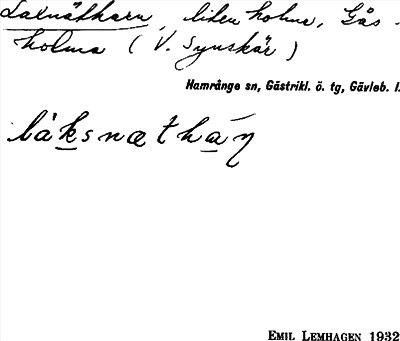 Laxnätharn, liten holme, Gås-
holma (V. Synskär)
Hamrånge sn, Gästrikl. ö. tg, Gävleb. l.
låksnæthaŋ
EMIL LEMHAGEN 1932